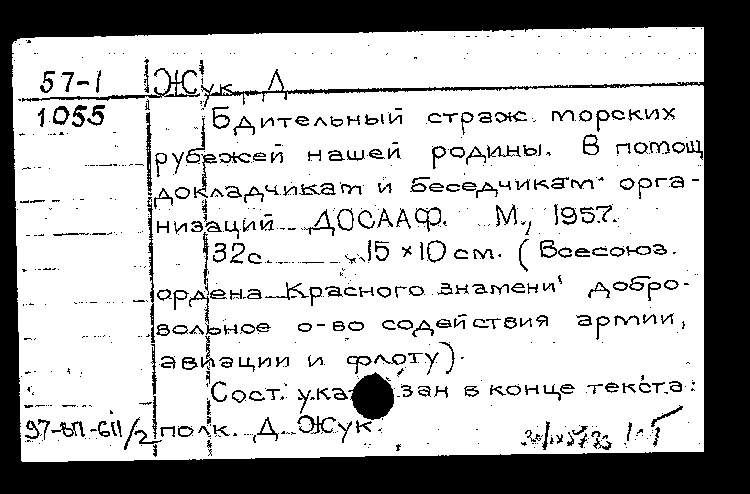 57-1 Жук, Д
1055 Бдительный страж торских
рубежей нашей родины. В помощ
докладчикам и беседчикам орга-
низаций ДОСААФ. М., 1957.
32с. 15×10 см. (Всесоюз.
ордена Красного знамени добро-
вольное о-во содействия армии,
авиации и флоту).
Сост. указан в конце текста:
97-ВП-611/2 полк. Д. Жук.